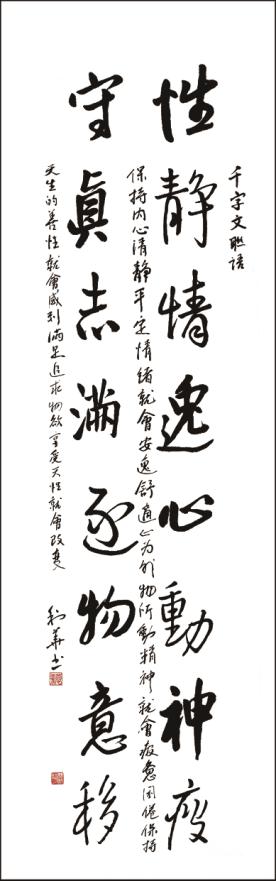 千字文联語
性静情逸心動神疲
保持内心清静平定情緒就會安逸舒適心为外物所動精神就會疲惫困倦保持
守真志滿逐物意移
天生的善性就會感到滿足追求物欲享受天性就會改變
華书